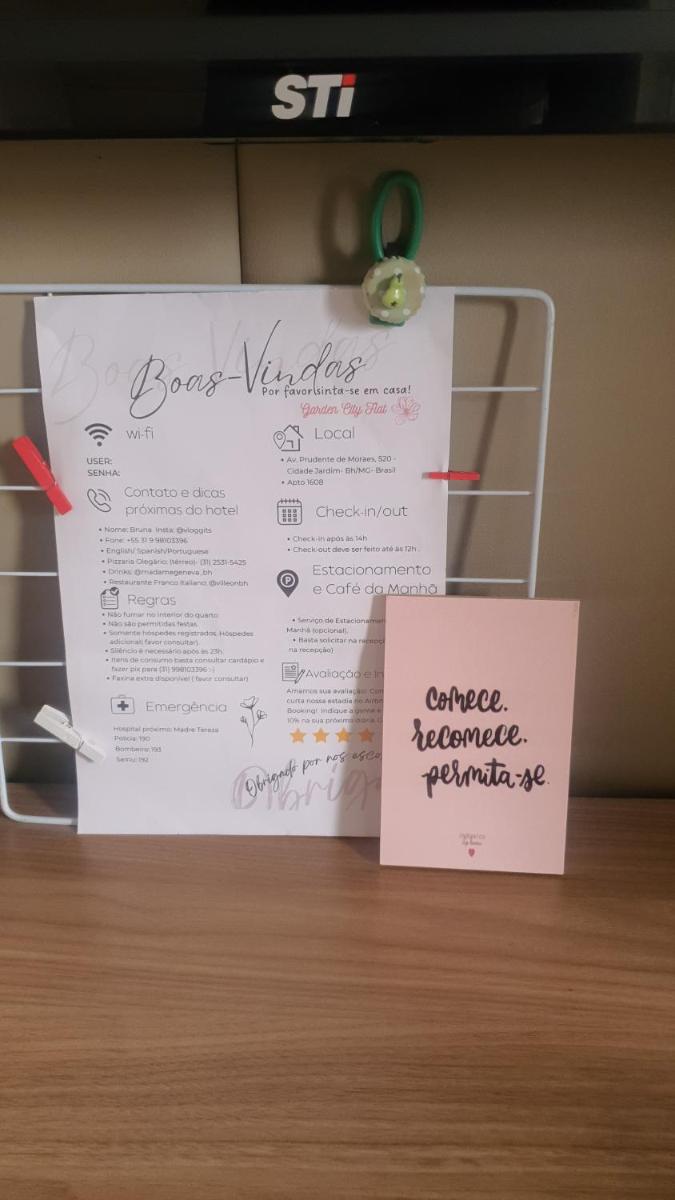 STi
Boas-Vindas
Por favor sinta-se em casa!
Garden City Flat
wi-fi
USER:
SENHA:
Contato e dicas
próximas do hotel
• Nome: Bruna Insta: @vloggits
• Fone: +55 31 9 98103396
• English/ Spanish/Portuguese
• Pizzaria Olegário: (térreo)- (31) 2531-5425
• Drinks: @madamegeneva_bh
• Restaurante Franco Italiano, @villeonbh
Regras
• Não fumar no interior do quarto
• Não são permitidas festas
• Somente hóspedes registrados. Hóspedes
adicionais( favor consultar).
• Silêncio é necessário após às 23h.
• Itens de consumo basta consultar cardápio e
fazer pix para (31) 998103396 :-)
• Faxina extra disponível ( favor consultar)
Emergência
Hospital próximo: Madre Tereza
Polícia: 190
Bombeiro: 193
Samu: 192
Local
• Av. Prudente de Moraes, 520 -
Cidade Jardim- Bh/MG- Brasil
• Apto 1608
Check-in/out
• Check-in após às 14h
• Check-out deve ser feito até às 12h .
Estacionamento
e Café da Manhã
• Serviço de Estacionamen
Manhã (opcional).
• Basta solicitar na recepçã
na recepção)
Avaliação e In
Amamos sua avaliação! Com
curta nossa estadia no Airbn
Booking! Indique a gente e
10% na sua próxima diária.
Obrigado por nos esco
Obriga
comece.
recomece.
permita-se.